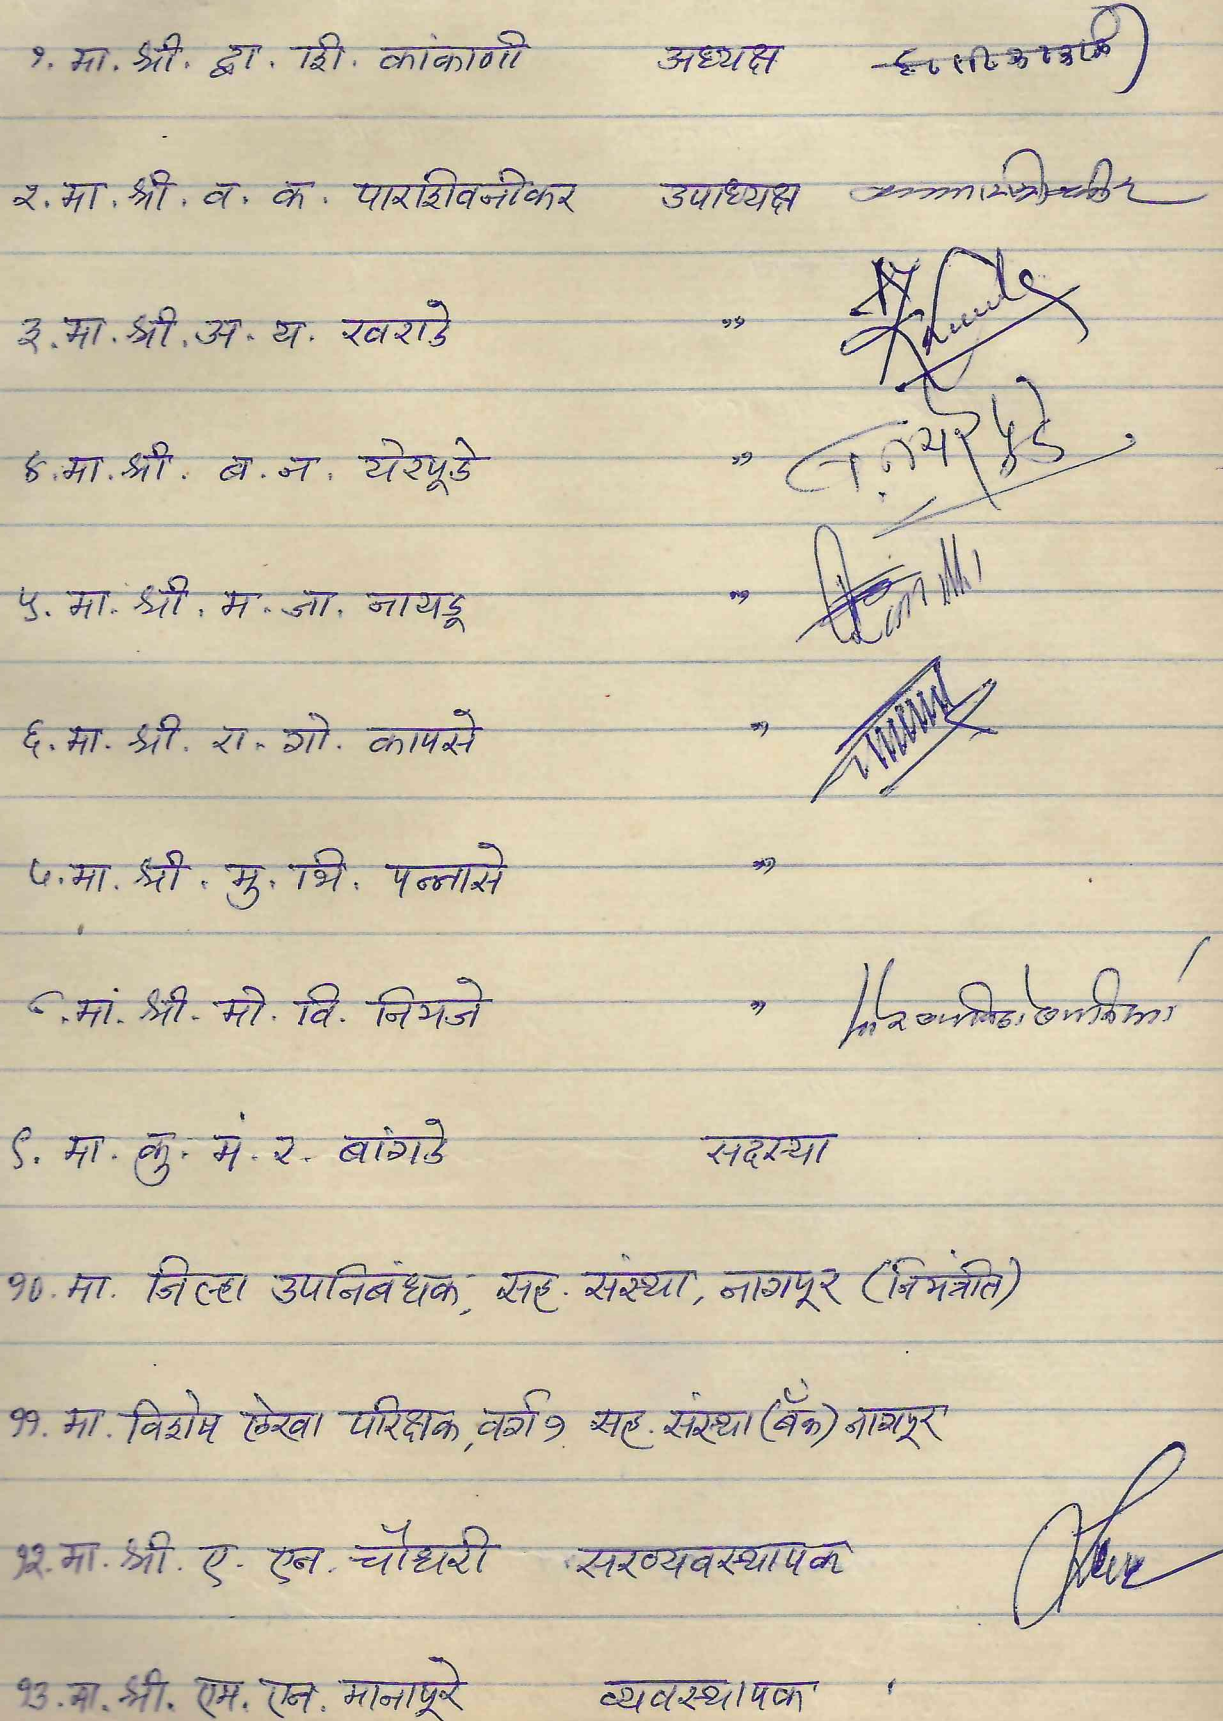 १. मा. श्री. द्वा. शि. कांकाणी अध्यक्ष
२. मा. श्री. व. क. पारशिवनीकर उपाध्यक्ष
३. मा. श्री. अ. य. खराडे ,,
४. मा. श्री. ब. न. येरपूडे ,, ब. न. येरपूडे
५. मा. श्री. म. जा. नायडू ,,
६. मा. श्री. रा. गो. कापसे ,,
७. मा. श्री. मु. भि. पन्नासे ,,
८. मां. श्री. मो. वि. नियजे ,,
९. मा. कु. मं. र. बांगडे सदस्या
१०. मा. जिल्हा उपनिबंधक, सह. संस्था, नागपूर (निमंत्रीत)
११. मा. विशेष लेखा परिक्षक, वर्ग १ सह. संस्था (बँक) नागपूर
१२. मा. श्री. ए. एन. चौधरी सरव्यवस्थापक
१३. मा. श्री. एम. एन. मानापूरे व्यवस्थापक